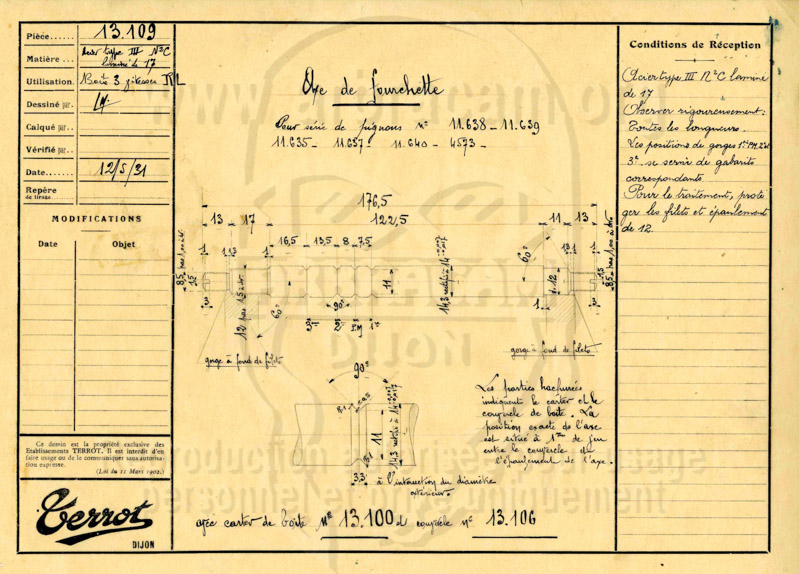 Pièce...... 13.109
Matière... Acier type III N°C
laminé de 17
Utilisation. Boîte 3 vitesses RL
Dessiné par.
Calqué par..
Vérifié par..
Date....... 12/5/31
Repère
de tirage......
MODIFICATIONS
Date Objet
Ce dessin est la propriété exclusive des
Etablissements TERROT. Il est interdit d'en
faire usage ou de le communiquer sans autorisa-
tion expresse.
(Loi du 11 Mars 1902.)
Terrot
DIJON
Axe de fourchette
Pour série de pignons N° 11.638 - 11.639
11.635 - 11.637 - 11.640 - 4573 -
176,5
122,5
13 17 11 13
16,5 13,5 8 7,5
1 1,5 1,5 1
60°
12 pas 1,5
11
14,3 rectifié à 14
12
90°
3ème 2e P.M 1re
gorge à fond de filets
gorge à fond de filets
90°
11
14,3 rectifié à 14
3,3
à l'intersection du diamètre
extérieur.
Les parties hachurées
indiquent le carter et le
couvercle de boîte. La
position exacte de l'axe
est située à 1mm de jeu
entre le couvercle et
l'épaulement de l'axe.
avec carter de boîte N° 13.100 et couvercle n° 13.106
Conditions de Réception
Acier type III N°C laminé
de 17
Observer rigoureusement:
Toutes les longueurs.
Les positions de gorges 1re PM, 2e et
3e se servir de gabarits
correspondants
Pour le traitement, proté
ger les filets et épaulement
de 12.
DIJON